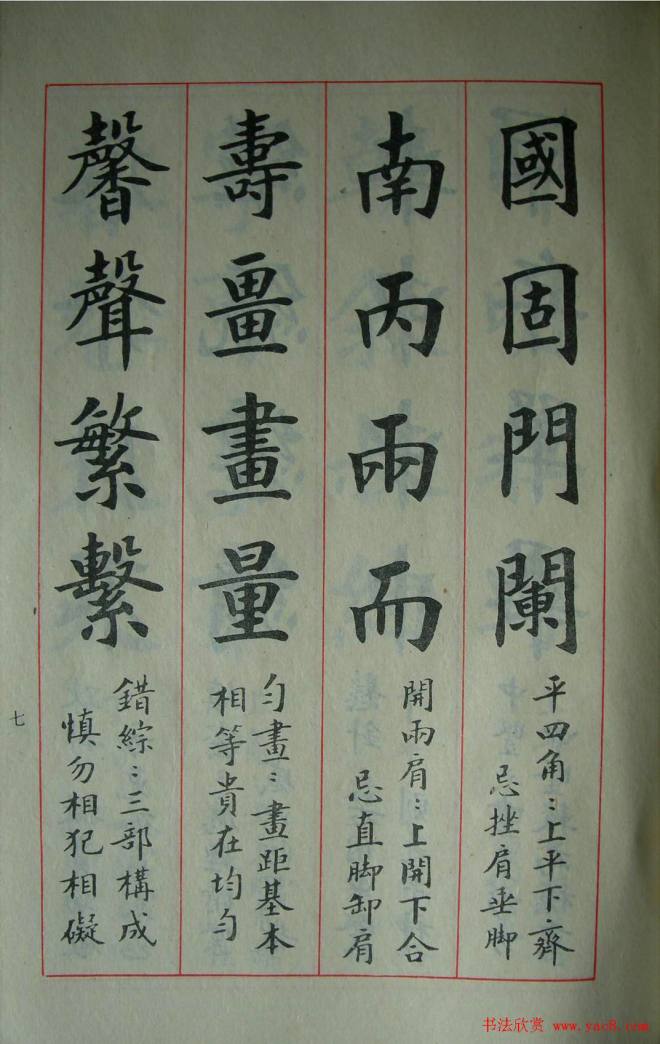 國固門闌
平四角：上平下齊
忌挫肩垂脚
南丙兩而
開兩肩：上開下合
忌直脚卸肩
壽畺畫量
勻畫：畫距基本
相等貴在均勻
馨聲繁繫
錯綜：三部構成
慎勿相犯相礙
七
书法欣赏 www.yac8.com